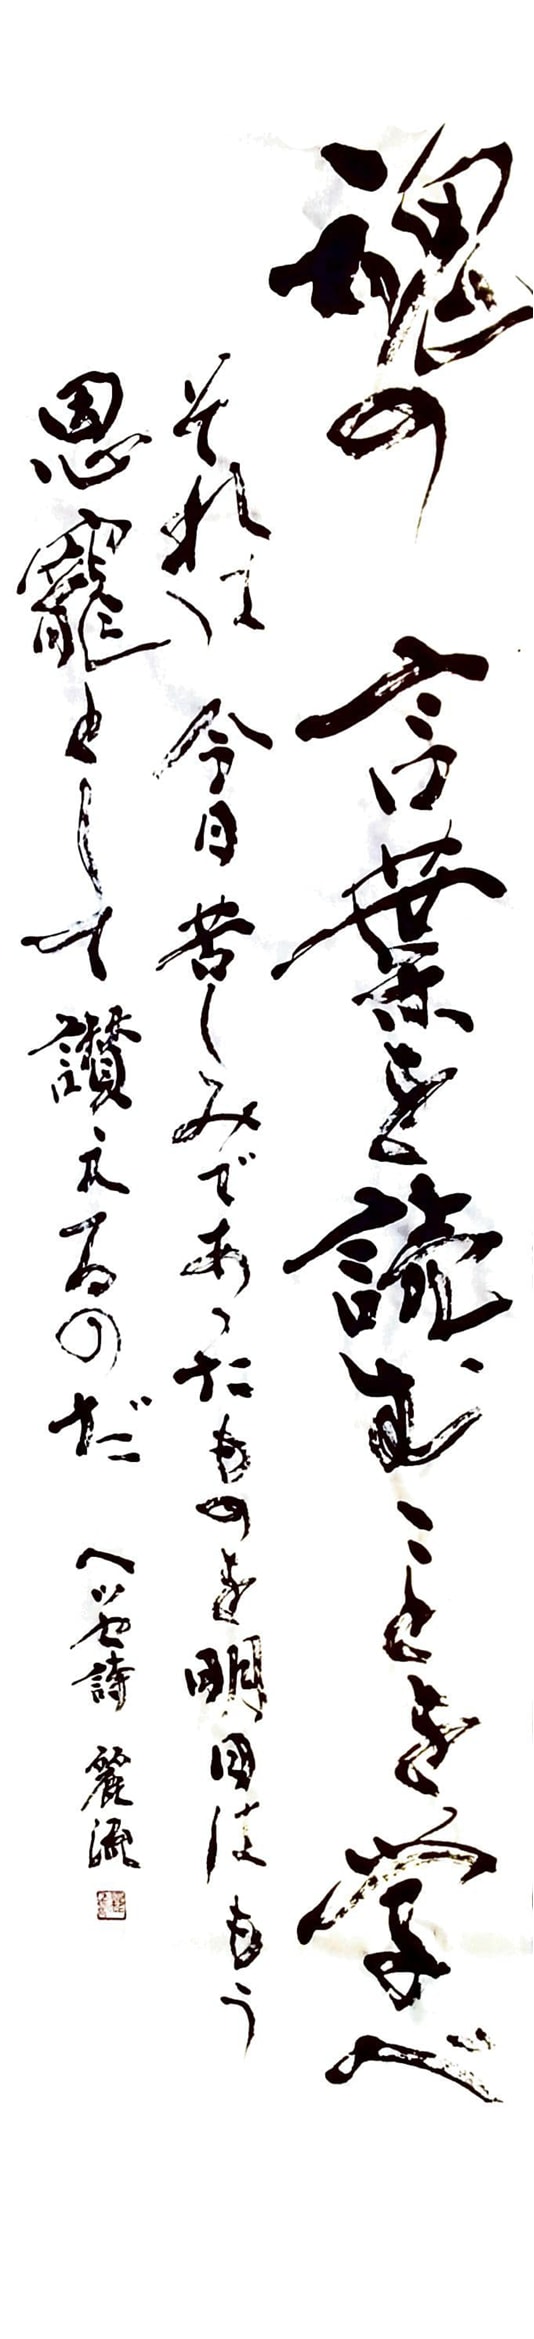 魂の言葉を読むことを学べ
それは今日苦しみであったものを明日はもう
恩寵として讃えるのだ ヘッセ詩 麗